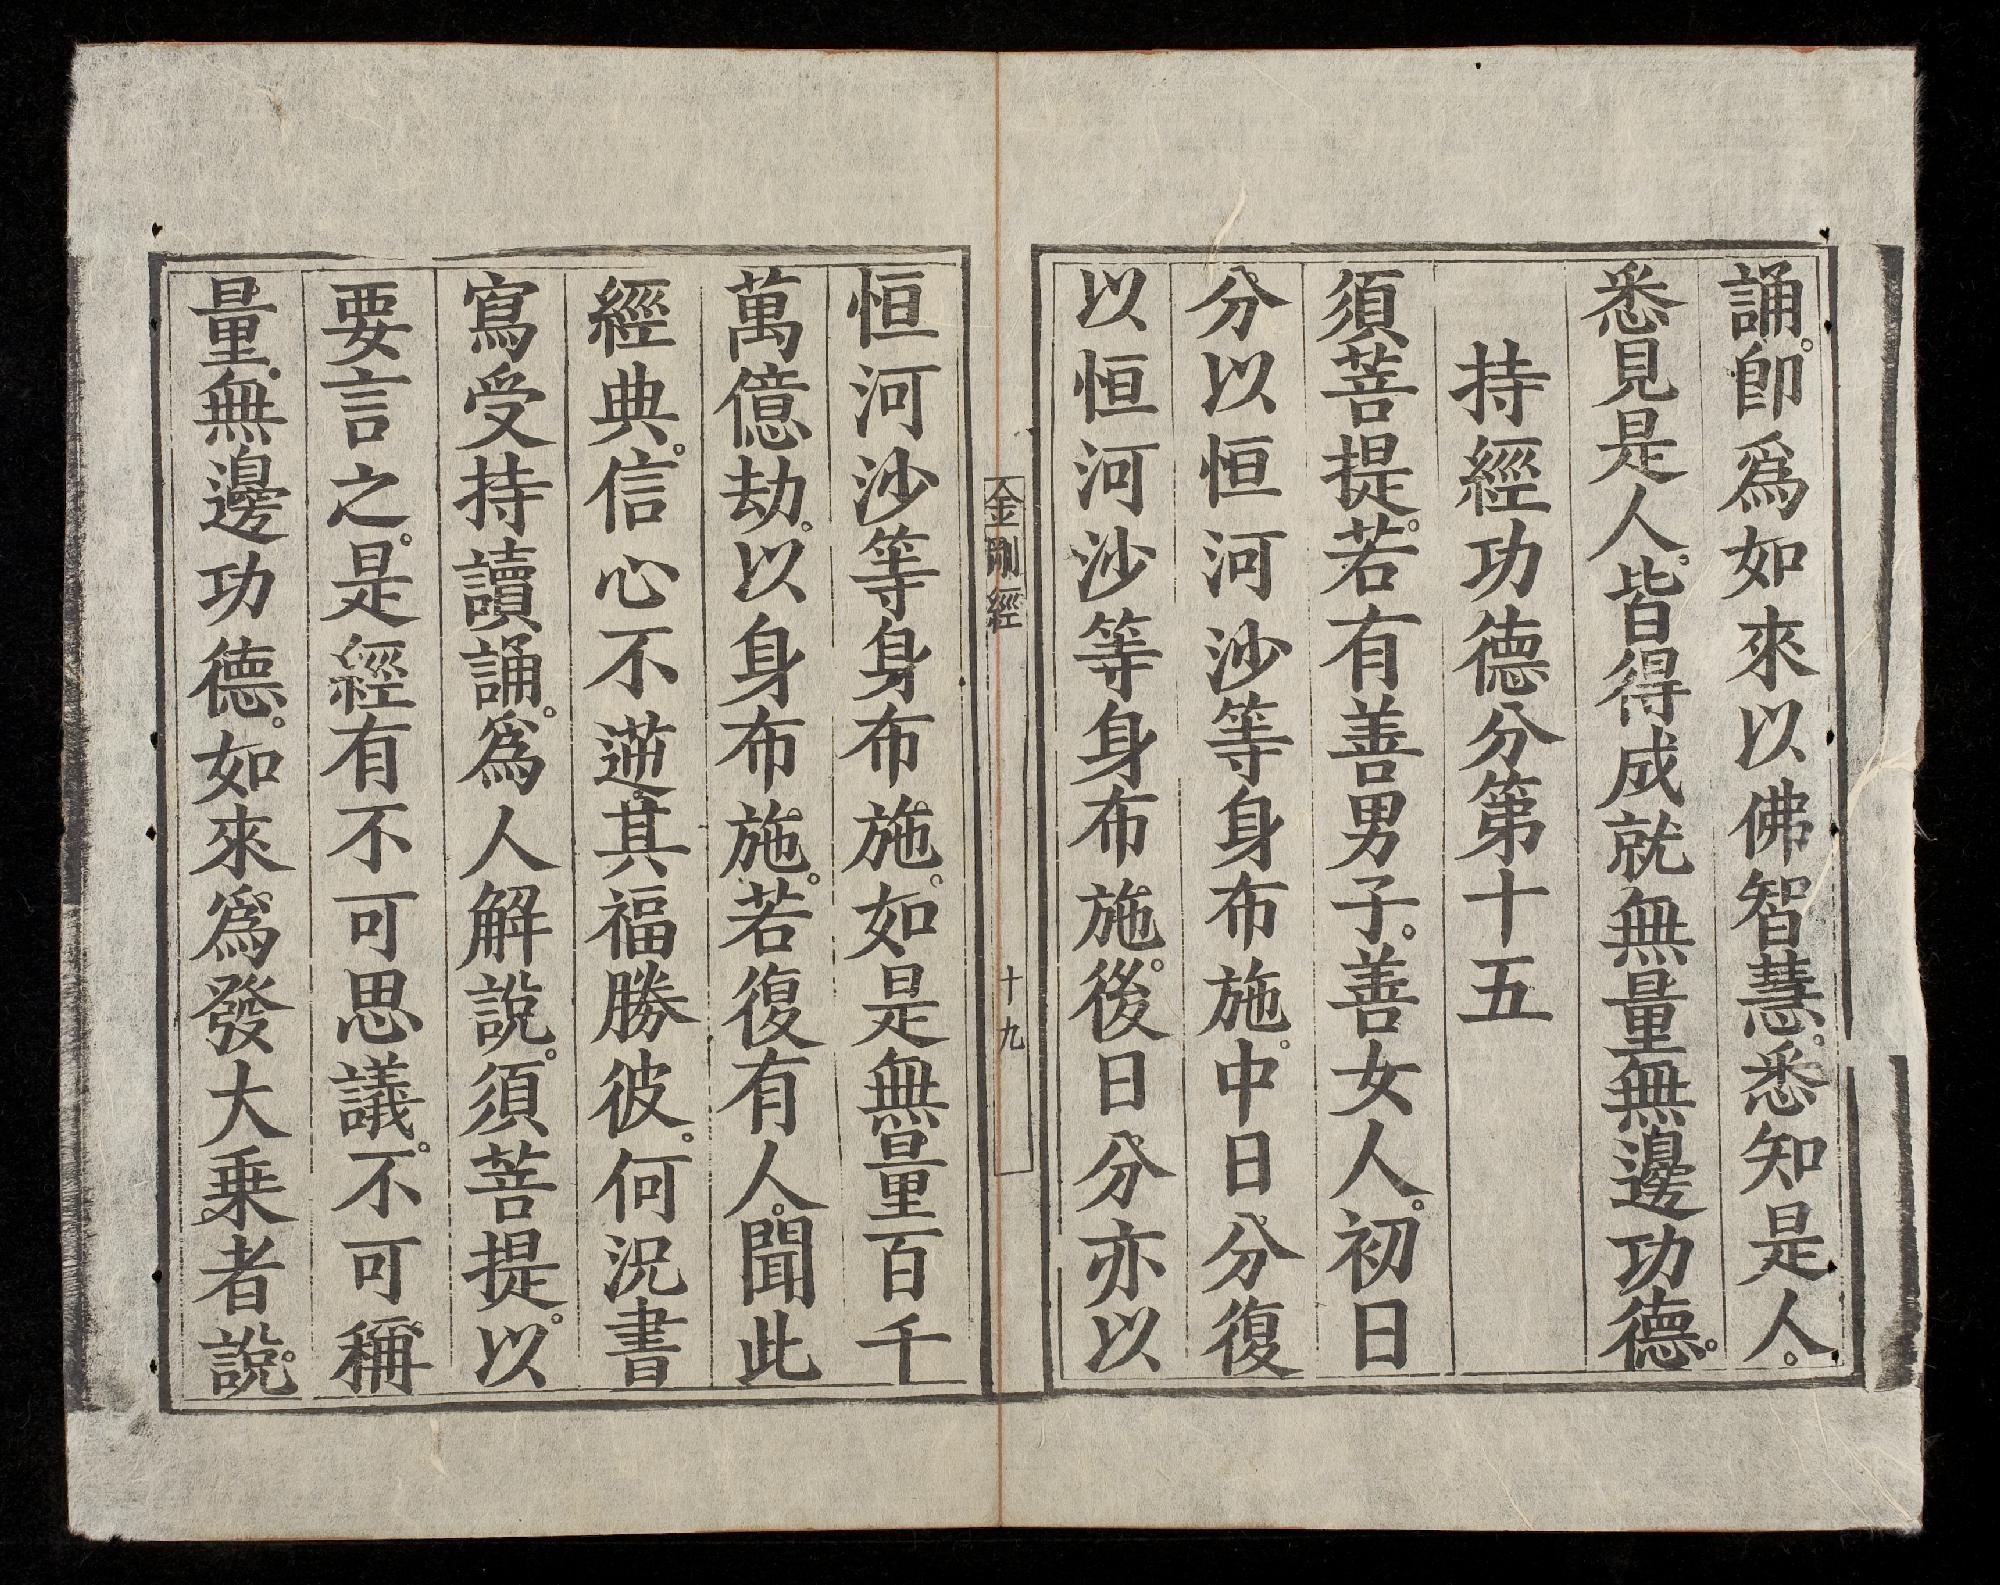 誦。卽爲如來以佛智慧。悉知是人。
悉見是人。皆得成就無量無邊功德。
持經功德分第十五
須菩提。若有善男子。善女人。初日
分以恒河沙等身布施。中日分復
以恒河沙等身布施。後日分亦以
金剛經
十九
恒河沙等身布施。如是無量百千
萬億劫。以身布施。若復有人。聞此
經典。信心不逆。其福勝彼。何況書
寫受持讀誦。爲人解說。須菩提。以
要言之。是經有不可思議。不可稱
量。無邊功德。如來爲發大乘者說。